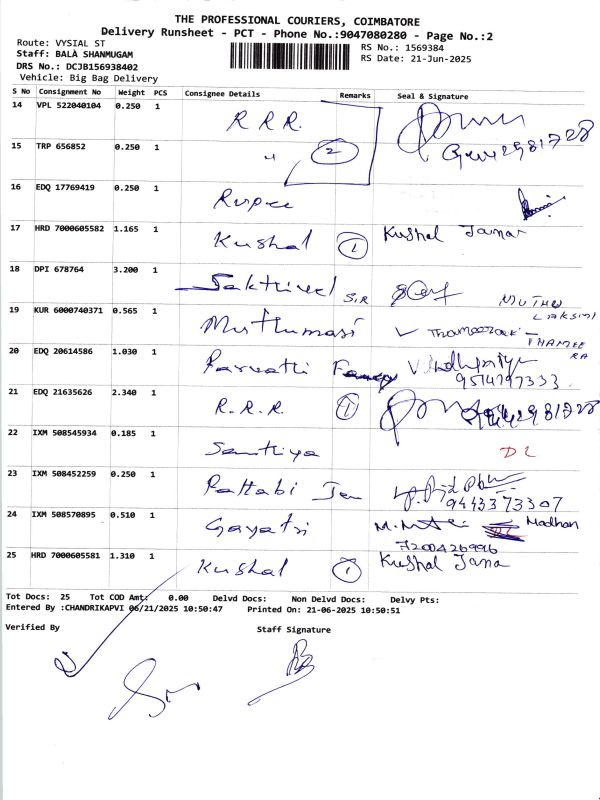 THE PROFESSIONAL COURIERS, COIMBATORE
Delivery Runsheet - PCT - Phone No.:9047080280 - Page No.:2
Route: VYSIAL ST
Staff: BALA SHANMUGAM
DRS No.: DCJB156938402
Vehicle: Big Bag Delivery
RS No.: 1569384
RS Date: 21-Jun-2025
S No Consignment No Weight PCS Consignee Details Remarks Seal & Signature
14 VPL 522040104 0.250 1 R.R.R.
15 TRP 656852 0.250 1 " 2
16 EDQ 17769419 0.250 1 Rupee
17 HRD 7000605582 1.165 1 Kushal 1 Kushal Jamar
18 DPI 678764 3.200 1 Sakthivel SIR
19 KUR 6000740371 0.565 1 Muthumasi MUTHU LAKSHMI
20 EDQ 20614586 1.030 1 Parvathi Fancy 9514797333
21 EDQ 21635626 2.340 1 R.R.R. 1
22 IXM 508545934 0.185 1 Santhiya DL
23 IXM 508452259 0.250 1 Pattabi 9443373307
24 IXM 508570895 0.510 1 Gayatri Madhan
7200426996
25 HRD 7000605581 1.310 1 Kushal 1 Kushal Jana
Tot Docs: 25 Tot COD Amt: 0.00 Delvd Docs: Non Delvd Docs: Delvy Pts:
Entered By :CHANDRIKAPVI 06/21/2025 10:50:47 Printed On: 21-06-2025 10:50:51
Verified By Staff Signature